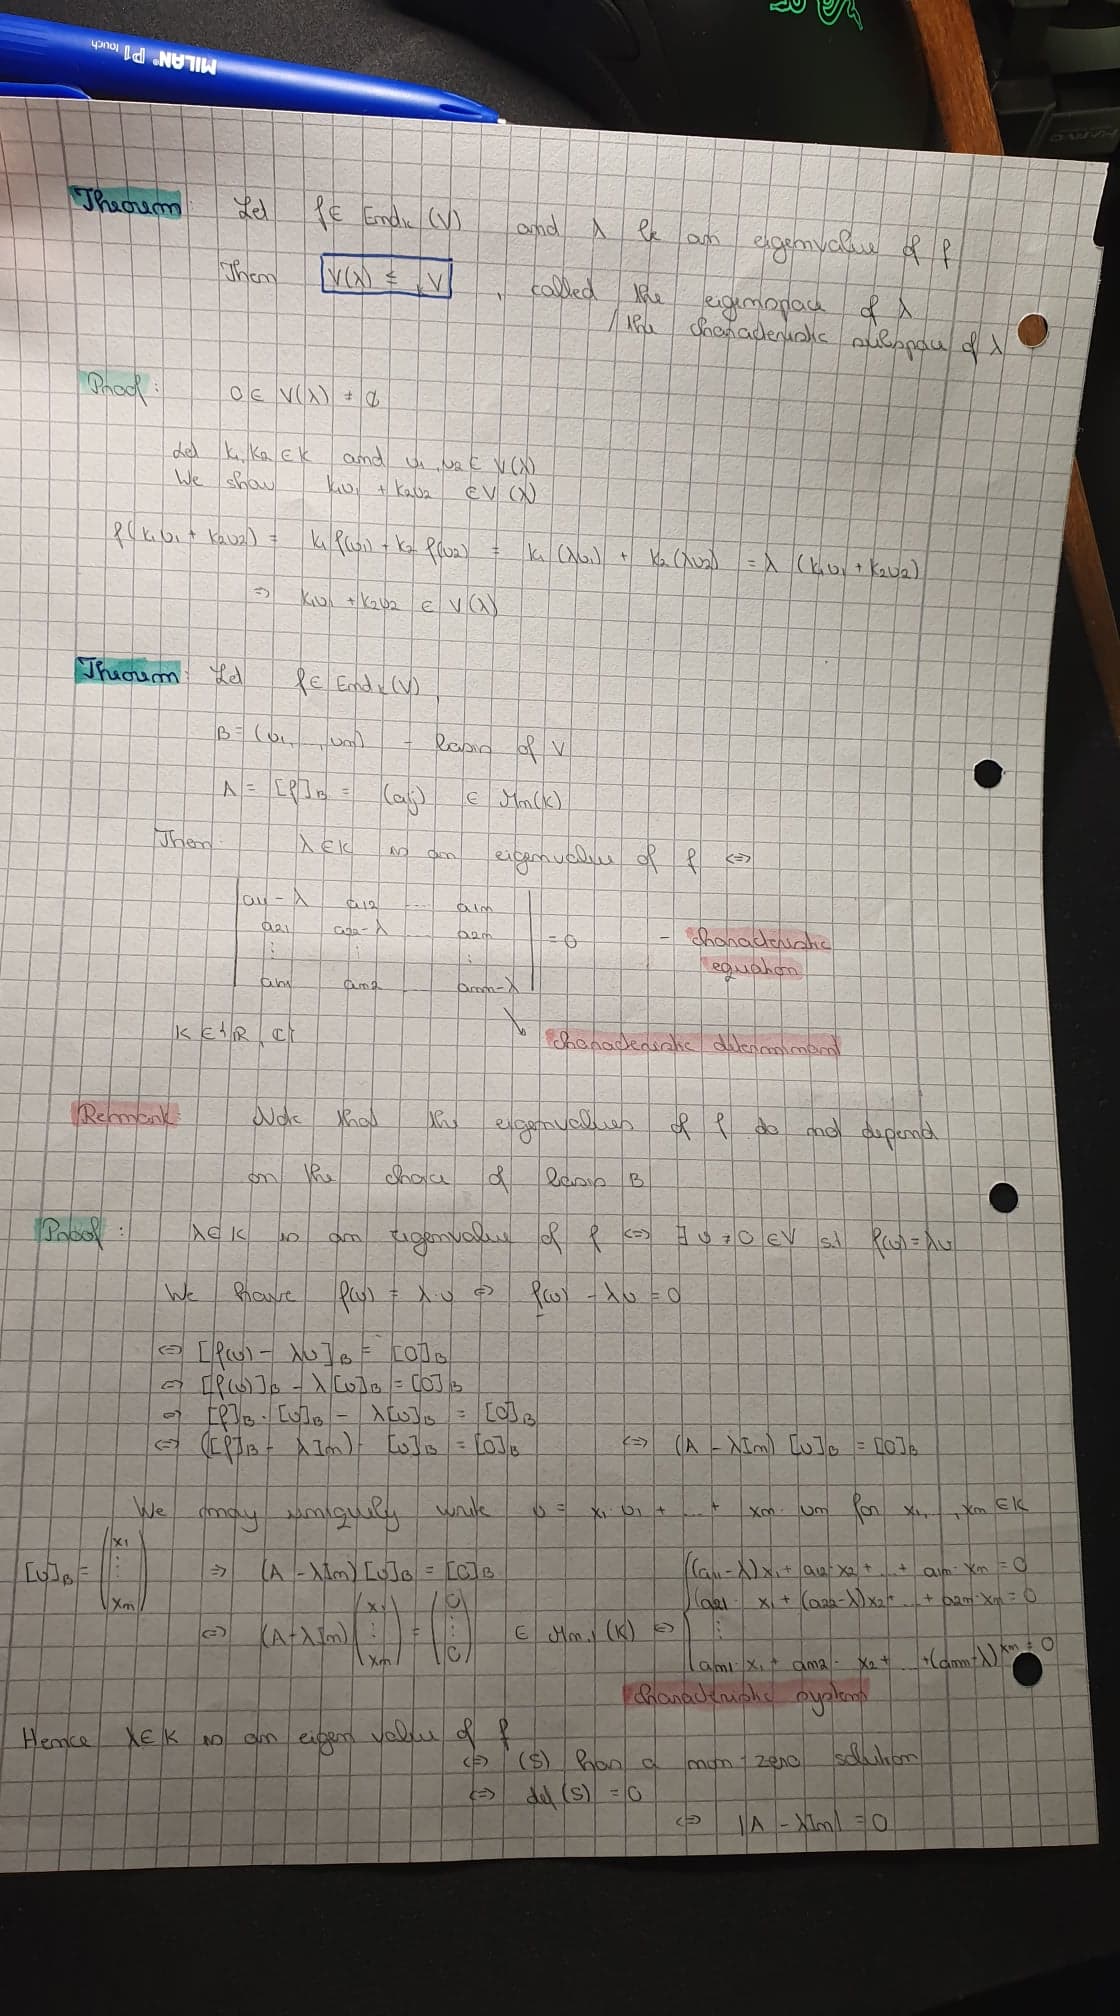 MILAN® P1 touch
Theorem: Let f ∈ End_K (V) and λ be an eigenvalue of f
Then V(λ) ≤ _K V , called the eigenspace of λ
/ the characteristic subspace of λ
Proof: 0 ∈ V(λ) ≠ ∅
Let k₁, k₂ ∈ K and v₁, v₂ ∈ V(λ)
We show k₁v₁ + k₂v₂ ∈ V(λ)
f(k₁v₁ + k₂v₂) = k₁ f(v₁) + k₂ f(v₂) = k₁ (λv₁) + k₂ (λv₂) = λ (k₁v₁ + k₂v₂)
⇒ k₁v₁ + k₂v₂ ∈ V(λ)
Theorem: Let f ∈ End_K (V),
B = (v₁, , vn) - basis of V
A = [f]_B = (aij) ∈ Mn(K)
Then λ ∈ K is an eigenvalue of f ⇔
| a11 - λ a12 ... a1n |
| a21 a22 - λ ... a2n | = 0 - characteristic
| ⋮ ⋮ ⋮ | equation
| an1 an2 ... ann - λ |
K ∈ {R, C} ↘ characteristic determinant
Remark: Note that the eigenvalues of f do not depend
on the choice of basis B
Proof: λ ∈ K is an eigenvalue of f ⇔ ∃ v ≠ 0 ∈ V s.t f(v) = λv
We have f(v) = λ·v ⇔ f(v) - λv = 0
⇔ [f(v) - λv]_B = [0]_B
⇔ [f(v)]_B - λ[v]_B = [0]_B
⇔ [f]_B · [v]_B - λ[v]_B = [0]_B
⇔ ([f]_B - λIn) · [v]_B = [0]_B ⇔ (A - λIn) [v]_B = [0]_B
We may uniquely write v = x₁·v₁ + ... + xn·vn for x₁, , xn ∈ K
[v]_B = (x₁ ⋮ xn) ⇒ (A - λIn) [v]_B = [0]_B
⇔ (A - λIn) (x₁ ⋮ xn) = (0 ⋮ 0) ∈ Mn,1 (K) ⇔
{ (a11 - λ)x₁ + a12·x₂ + ... + a1n·xn = 0
a21·x₁ + (a22 - λ)x₂ + ... + a2n·xn = 0
⋮
an1·x₁ + an2·x₂ + ... + (ann - λ)xn = 0
characteristic system
Hence λ ∈ K is an eigen value of f
⇔ (S) has a non-zero solution
⇔ det (S) = 0
⇔ |A - λIn| = 0